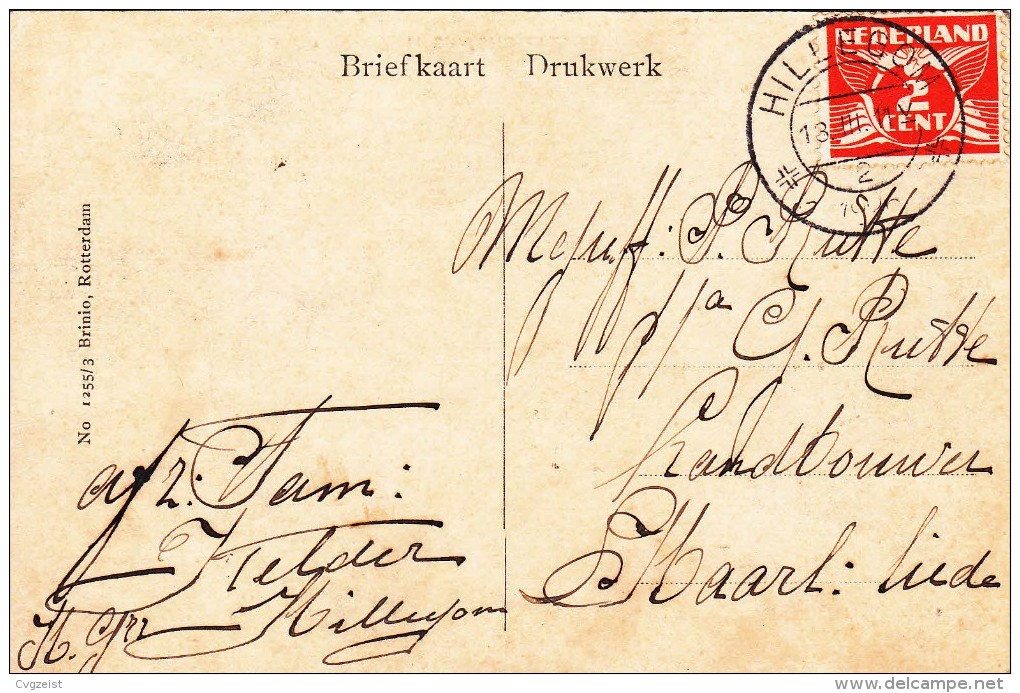 Briefkaart Drukwerk
NEDERLAND
2
CENT
HILLEGOM
18.III.
2
No 1255/3 Brinio, Rotterdam
Mejuff: P. Rutte
p/a G. Rutte
Landbouwer
Haarl: liede
afz: Fam:
Kelder
Hillegom
Cvgzeist
www.delcampe.net